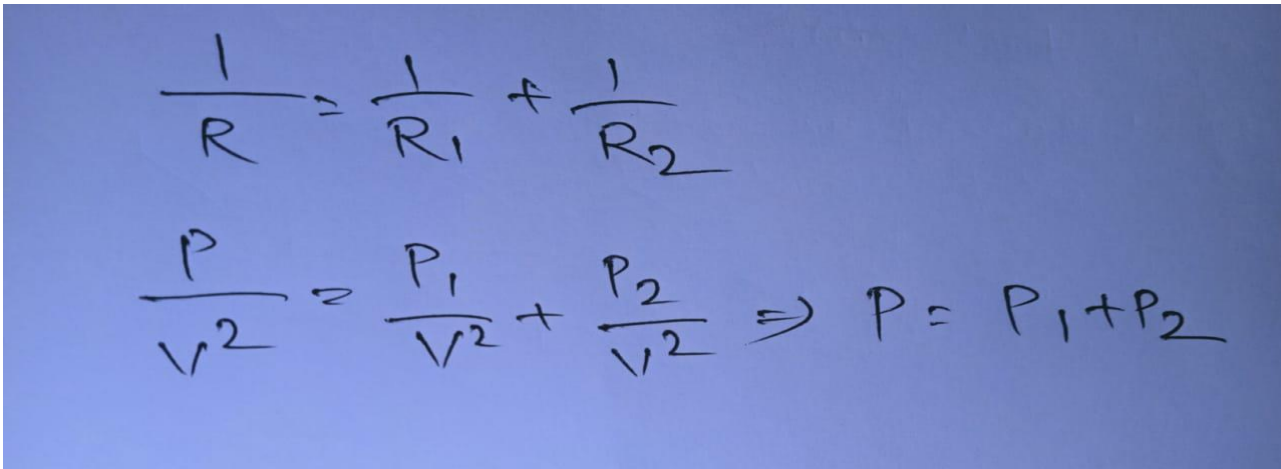 1/R = 1/R₁ + 1/R₂
P/V² = P₁/V² + P₂/V² ⇒ P = P₁ + P₂